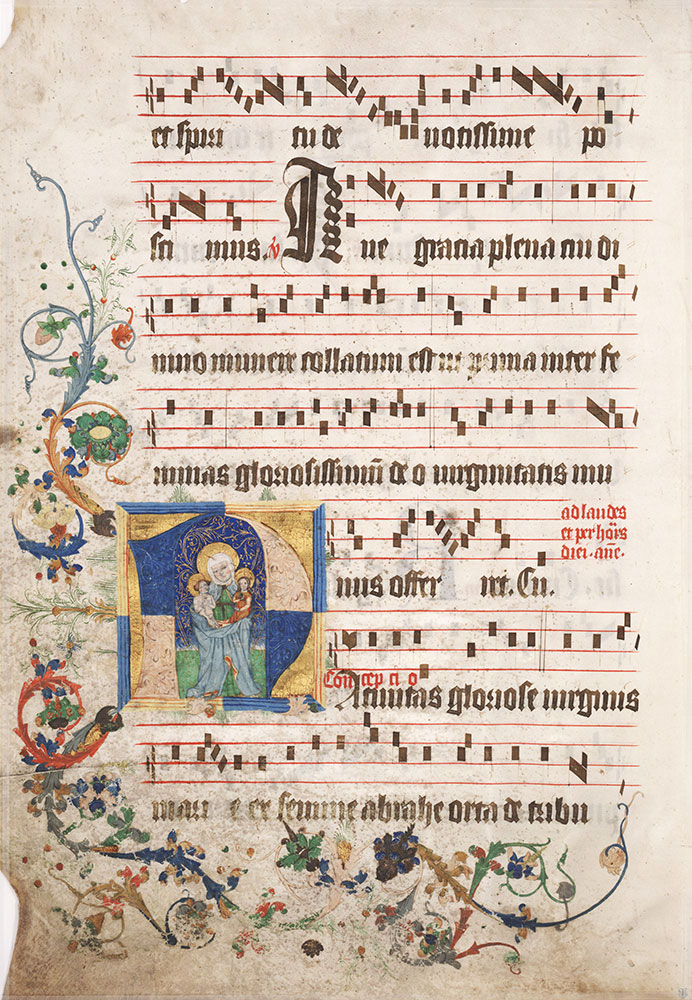 et spiri tu de uotissime po
sci mus. ℣ Aue gracia plena cui di
uino munere collatum est ut prima inter fe
minas gloriosissimū deo uirginitatis mu
nus offer ret. Cu.
ad laudes
et per horas
diei. ane.
Concepcio
Natiuitas gloriose uirginis
mari e ex semine abrahe orta de tribu